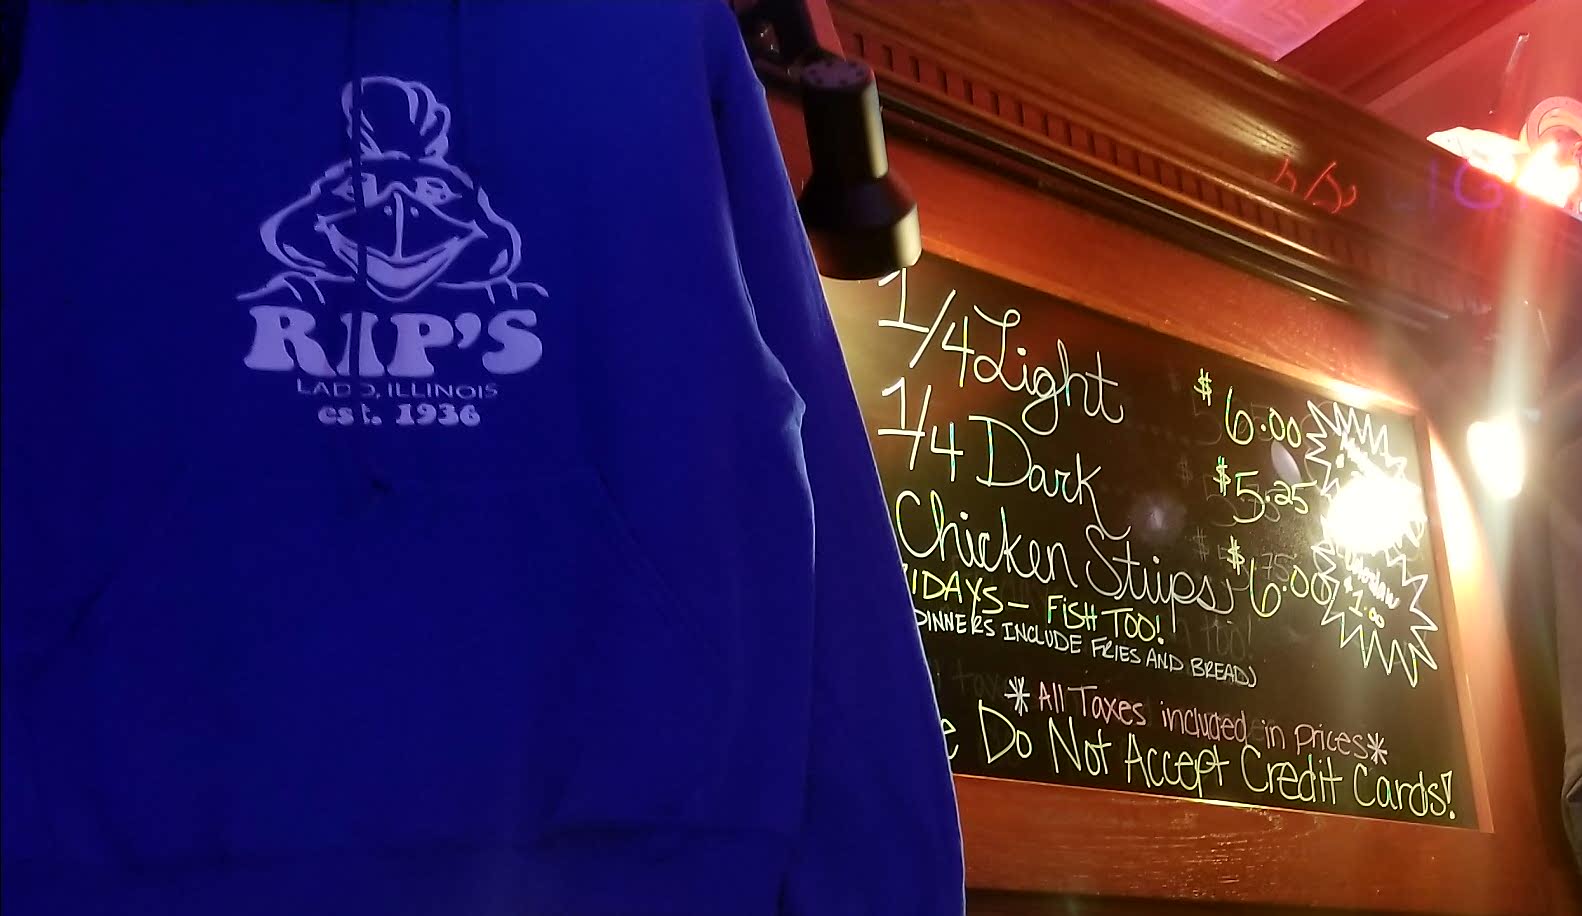 RIP'S
LADD, ILLINOIS
est. 1936
1/4 Light $6.00
1/4 Dark $5.25
Chicken Strips $6.00
FRIDAYS - FISH TOO!
DINNERS INCLUDE FRIES AND BREAD
*All Taxes included in prices*
We Do Not Accept Credit Cards!
1.00